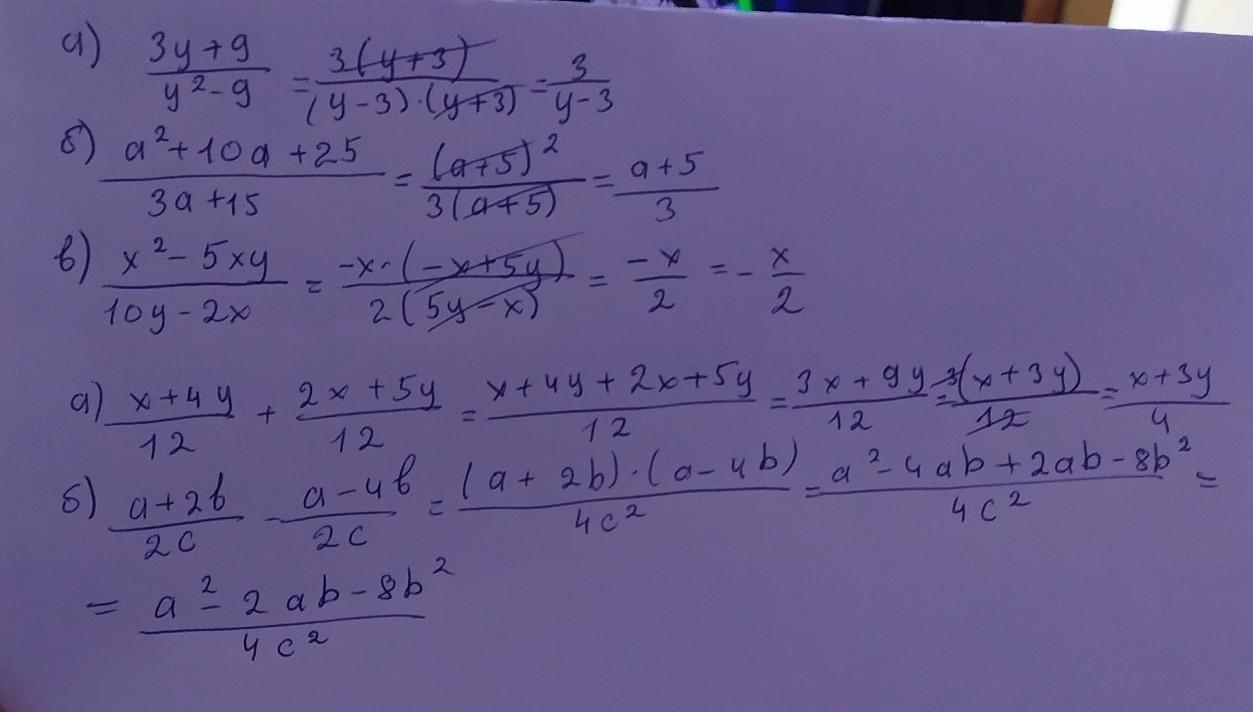 а) (3y+9)/(y²-9) = 3(y+3)/((y-3)·(y+3)) = 3/(y-3)
б) (a²+10a+25)/(3a+15) = (a+5)²/(3(a+5)) = (a+5)/3
в) (x²-5xy)/(10y-2x) = -x·(-x+5y)/(2(5y-x)) = -x/2 = -x/2
а) (x+4y)/12 + (2x+5y)/12 = (x+4y+2x+5y)/12 = (3x+9y)/12 = 3(x+3y)/12 = (x+3y)/4
б) (a+2b)/2c - (a-4b)/2c = (a+2b)·(a-4b)/4c² = (a²-4ab+2ab-8b²)/4c² =
= (a²-2ab-8b²)/4c²